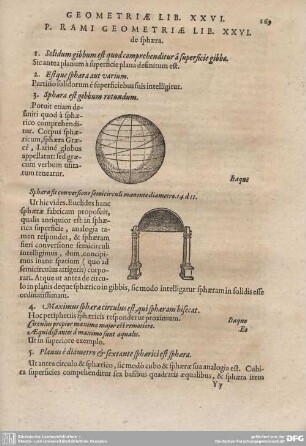 GEOMETRIÆ LIB. XXVI.
169
P. RAMI GEOMETRIÆ LIB. XXVI.
de sphæra.
1. Solidum gibbum est quod comprehenditur à superficie gibba.
Sic antea planum à superficie plana definitum est.
2. Estque sphæra aut varium.
Partitio solidorum è superficiebus suis intelligitur.
3. Sphæra est gibbum rotundum.
Potuit etiam de-
finiri quod à sphæ-
rico comprehendi-
tur. Corpus sphæ-
ricum, sphæra Græ-
cè, Latinè globus
appellatur: sed græ-
cum verbum usita-
tum teneatur.
Itaque
Sphæra fit conversione semicirculi manente diametro. 14. d 11.
Ut hic vides. Euclides hanc
sphæræ fabricam proposuit,
qualis antiquior est in sphæ-
rica superficie, analogia ta-
men respondet, & sphæram
fieri conversione semicirculi
intelligimus, dum concipi-
mus inane spatium (quo ad
semicirculus attigerit) corpo-
rari. Atque ut antea de circu-
lo in planis deque sphærico in gibbis, sic modo intelligatur sphæram in solidis esse
ordinatissimam.
4. Maximus sphæræ circulus est, qui sphæram bisecat.
Hoc peripheriis sphæricis respondet proximum.
Itaque
Circulus propior maximo major est remotiore.
Et
Æquidistantes à maximo sunt æquales.
Ut in superiore exemplo.
5. Planus è diametro & sextante sphærici est sphæra.
Ut antea circulo & sphærico, sic modo cubo & sphæræ sua analogia est. Cubi-
ca superficies comprehenditur sex basibus quadratis æqualibus, & sphæra
Yy